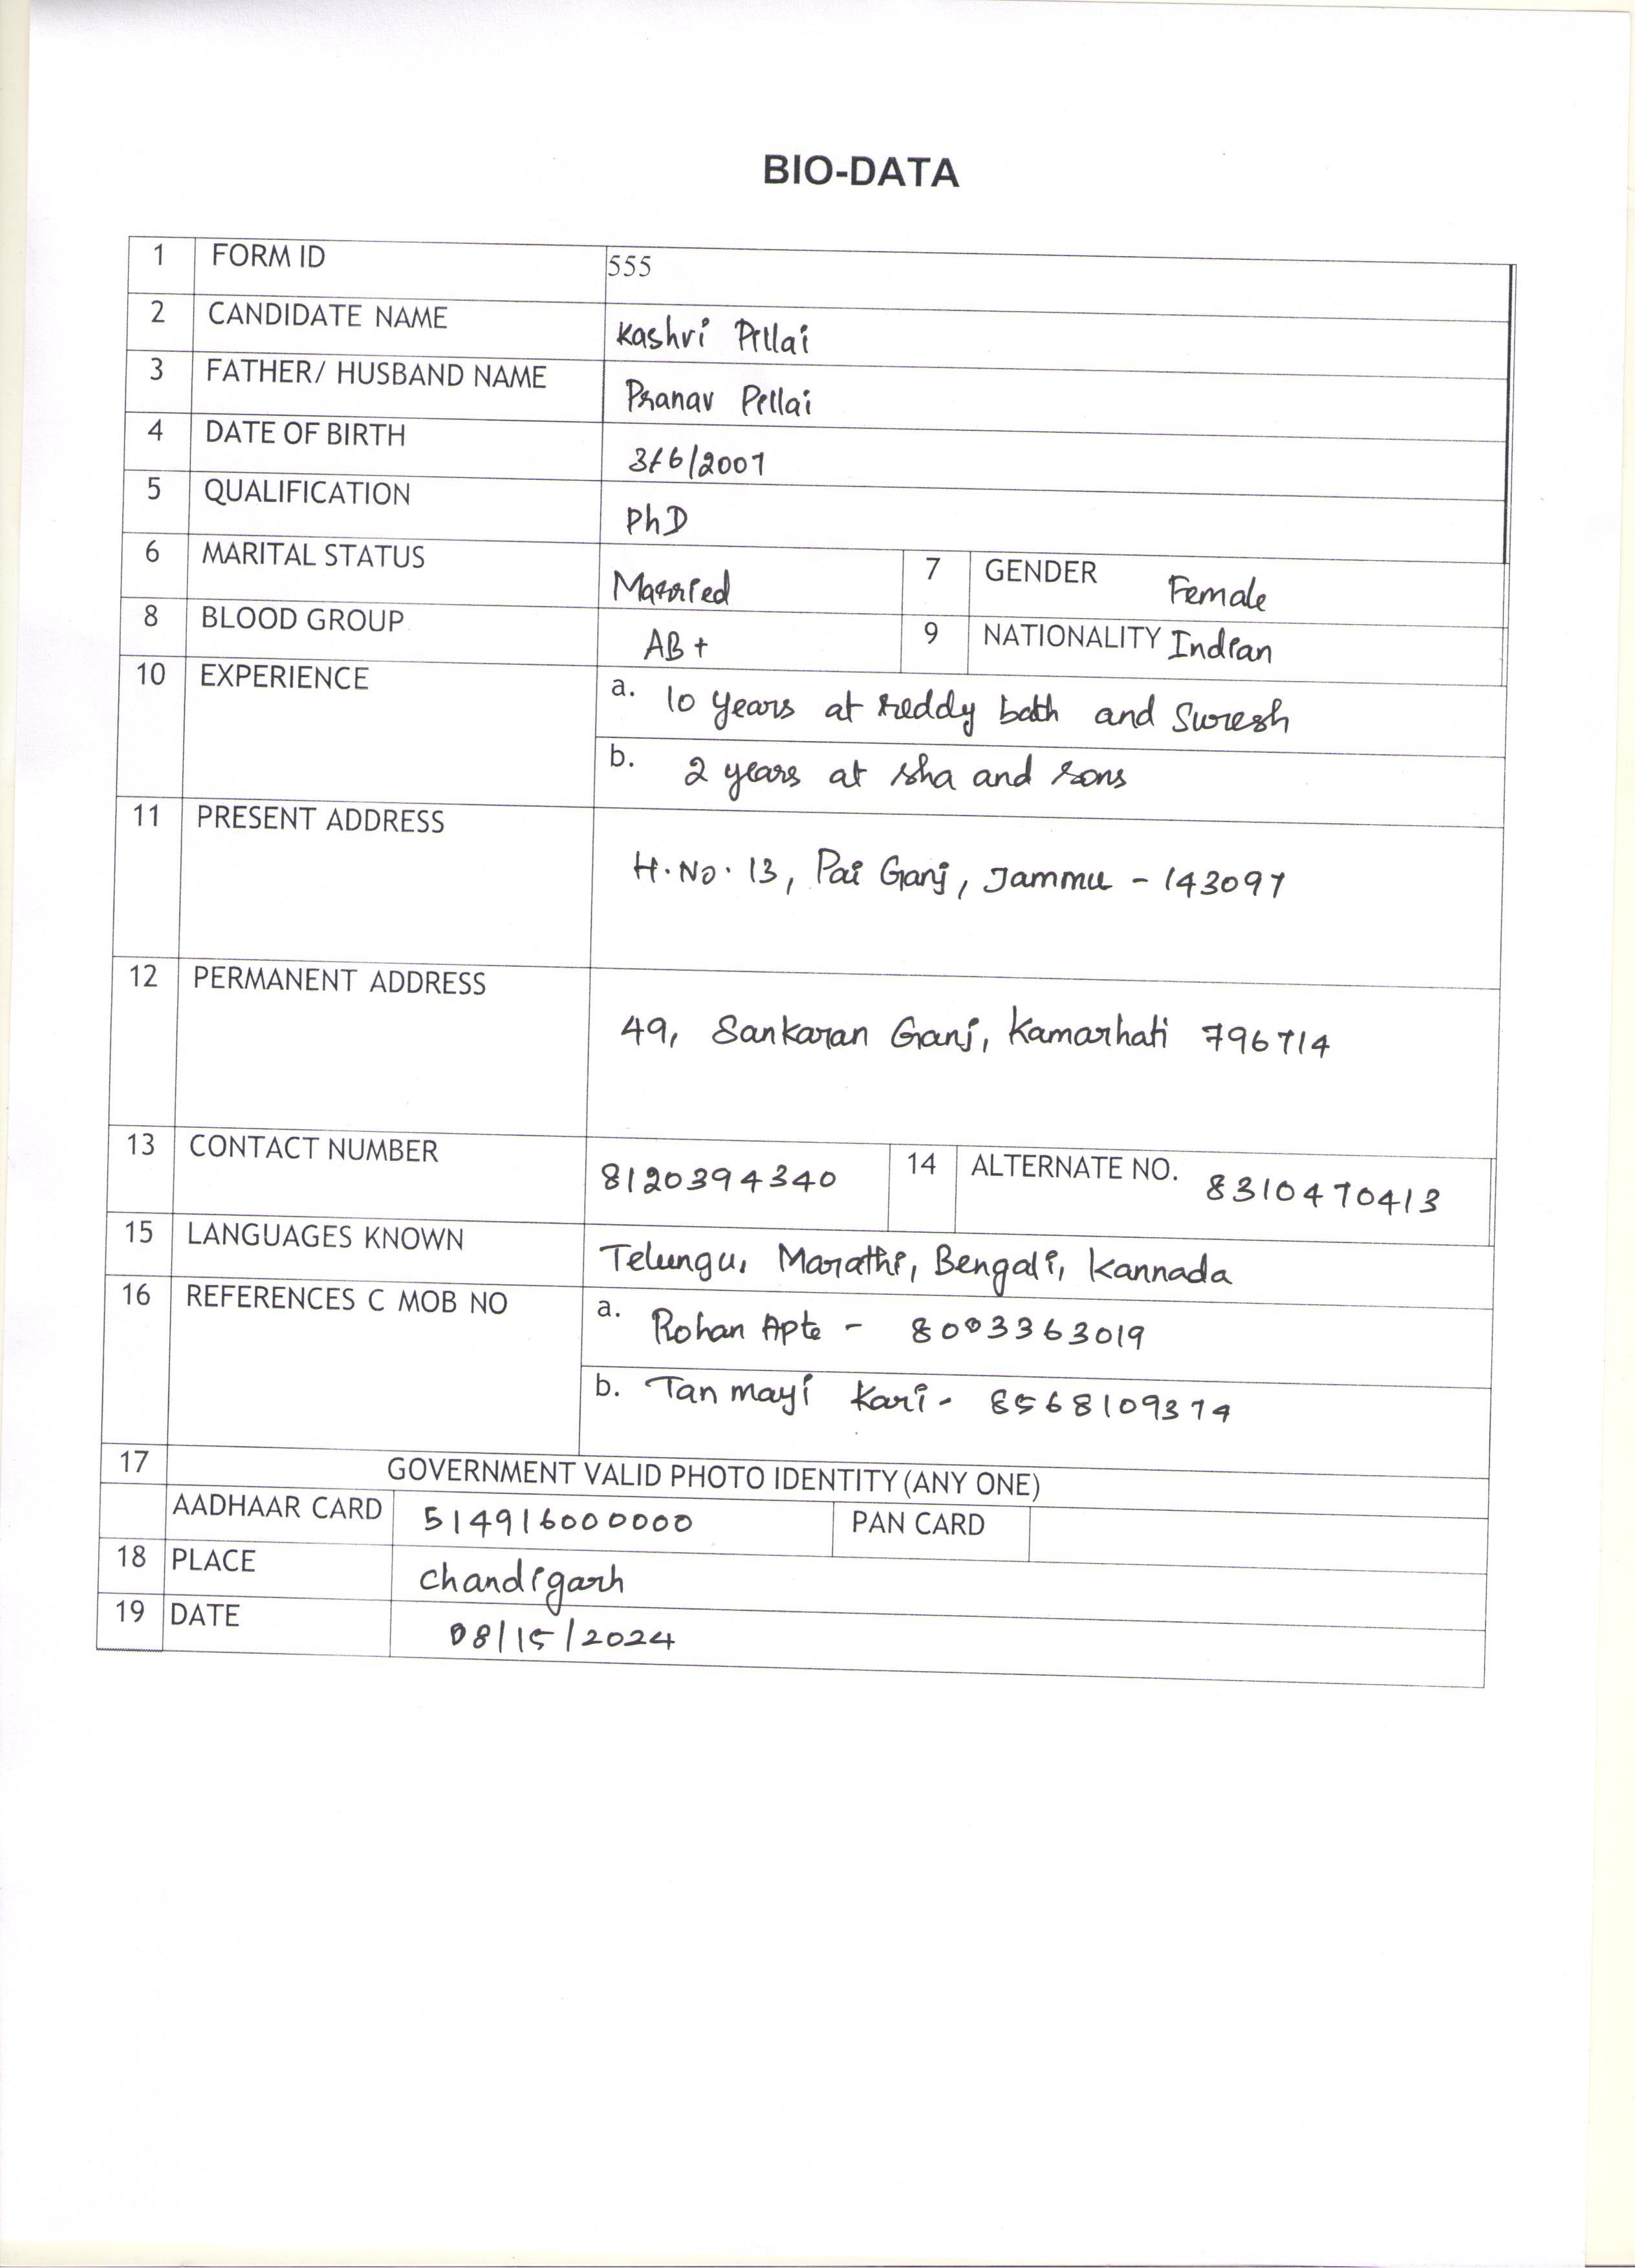 BIO-DATA
1 FORM ID 555
2 CANDIDATE NAME Kashri Pillai
3 FATHER/ HUSBAND NAME Pranav Pillai
4 DATE OF BIRTH 3/6/2007
5 QUALIFICATION PhD
6 MARITAL STATUS Married 7 GENDER Female
8 BLOOD GROUP AB+ 9 NATIONALITY Indian
10 EXPERIENCE a. 10 years at reddy bath and Suresh
b. 2 years at sha and sons
11 PRESENT ADDRESS
H.No. 13, Pai Ganj, Jammu - 143097
12 PERMANENT ADDRESS
49, Sankaran Ganj, Kamarhati 796714
13 CONTACT NUMBER 8120394340 14 ALTERNATE NO. 8310470413
15 LANGUAGES KNOWN Telungu, Marathi, Bengali, Kannada
16 REFERENCES C MOB NO a. Rohan Apte - 8003363019
b. Tanmayi Kari - 8568109374
17 GOVERNMENT VALID PHOTO IDENTITY (ANY ONE)
AADHAAR CARD 514916000000 PAN CARD
18 PLACE Chandigarh
19 DATE 08/15/2024